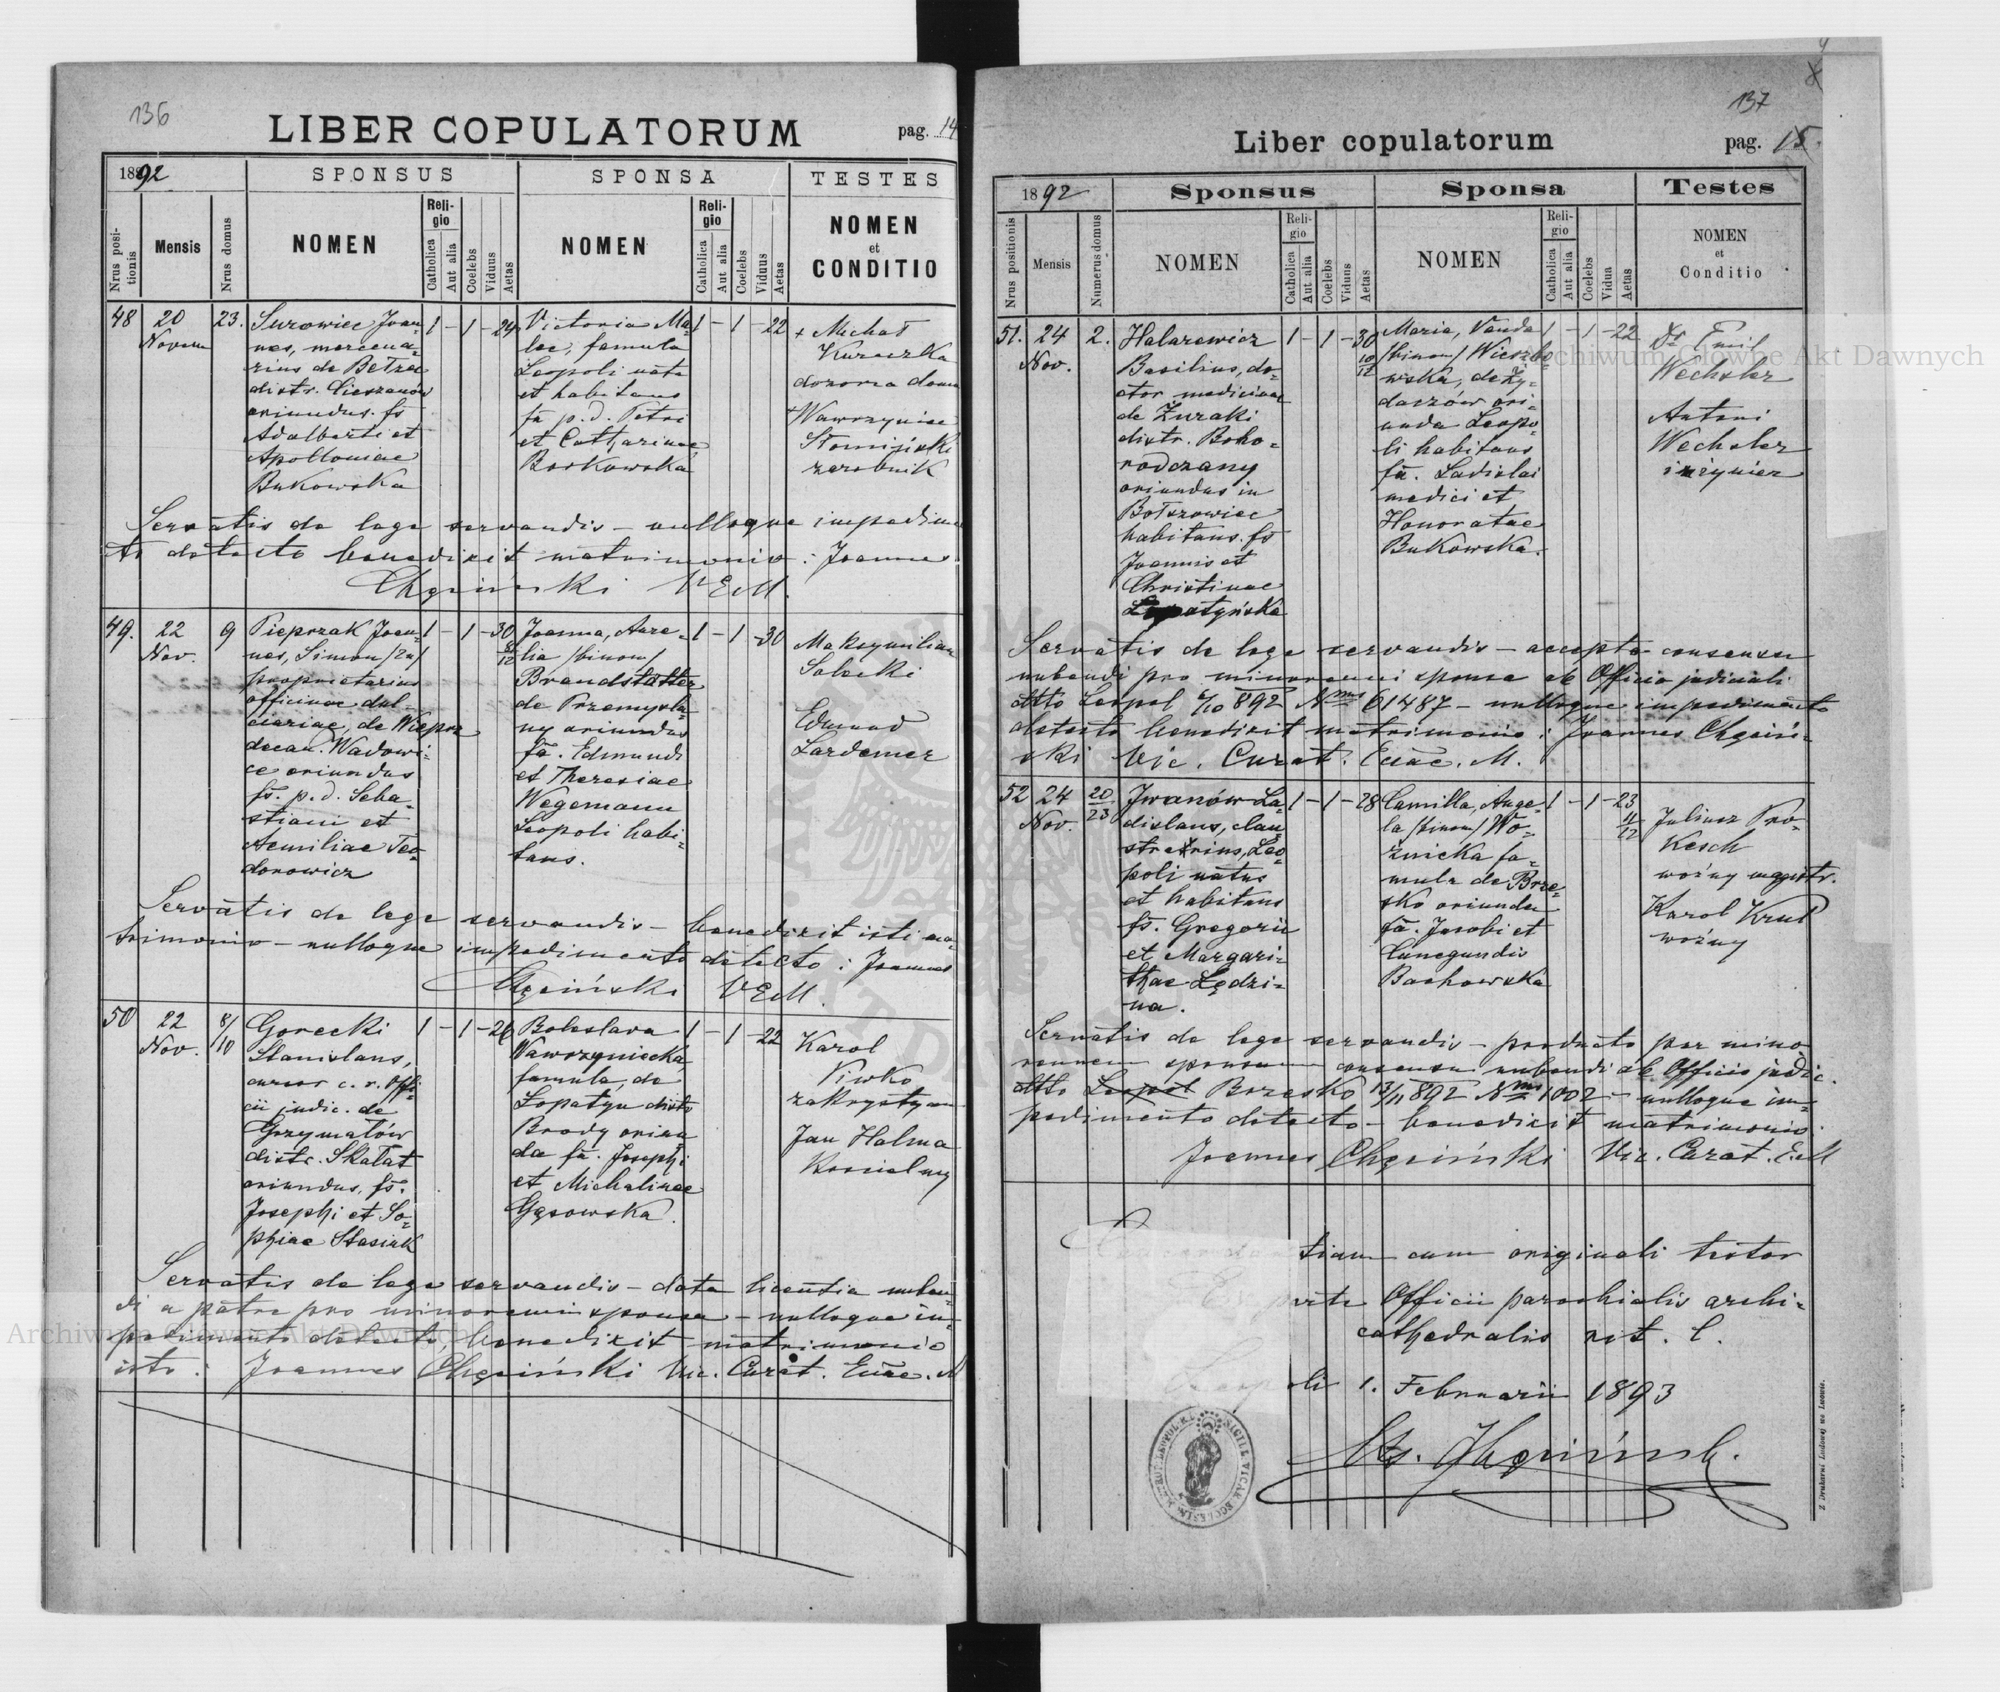 136
LIBER COPULATORUM
pag. 14
1892
SPONSUS
SPONSA
TESTES
Nrus positionis
Mensis
Nrus domus
NOMEN
Religio
Catholica
Aut alia
Coelebs
Viduus
Aetas
NOMEN
Religio
Catholica
Aut alia
Coelebs
Viduus
Aetas
NOMEN
et
CONDITIO
48
20
Novem
23.
Surowiec Joan-
nes, mercena-
rius de Bełzec
distr. Cieszanów
oriundus. fs
Adalberti et
Apolloniae
Bukowska
1 - 1 - 24
Victoria Ma-
lec, famula
Leopoli nata
et habitans
fa p. d. Petri
et Catharinae
Borkowska
1 - 1 - 22
+ Michał
Kuraszka
dozorca domu
+ Wawrzyniec
Słomiński
zarobnik
Servatis de lege servandis - nulloque impedimen
to detecto benedixit matrimonio : Joannes
Chęciński VEM.
49.
22
Nov.
9
Pieprzak Joan-
nes, Simon /2n/
proprietarius
officinae dul-
ciariae, de Wieprz
decan. Wadowi-
ce oriundus
fs. p. d. Seba-
stiani et
Aemiliae Teo-
dorowicz
1 - 1 - 30
Joanna, Aure-
lia /binom/
Brandstätter
de Przemyśla-
ny oriundus
fa. Edmundi
et Theresiae
Wegemann
Leopoli habi-
tans.
1 - 1 - 30
Maksymilian
Sobecki
Edmund
Lardemer
Servatis de lege servandis - benedixit isti ma-
trimonio - nulloque impedimento detecto : Joannes
Chęciński VEM.
50
22
Nov.
8/10
Gorecki
Stanislaus,
cursor c. r. Offi-
cii judic. de
Grzymałów
distr. Skałat
oriundus, fs.
Josephi et So-
phiae Stasiuk
1 - 1 - 26
Boleslava
Wawrzyniecka
famula, de
Łopatyn distr
Brody oriun
da fa. Josephi
et Michalinae
Gąsowska.
1 - 1 - 22
Karol
Piwko
zakrystyan
Jan Halma
kościelny
Servatis de lege servandis - data licentia nuben-
di a patre pro minorenni sponsa - nulloque im-
pedimento detecto, benedixit matrimonio
isti : Joannes Chęciński Vic. Curat. Eccae. M
137
Liber copulatorum
pag. 15.
1892
Sponsus
Sponsa
Testes
Nrus positionis
Mensis
Numerus domus
NOMEN
Religio
Catholica
Aut alia
Coelebs
Viduus
Aetas
NOMEN
Religio
Catholica
Aut alia
Coelebs
Vidua
Aetas
NOMEN
et
Conditio
51.
24
Nov.
2.
Halarewicz
Basilius, do-
ctor medicinae
de Żuraki
distr. Boho-
rodczany
oriundus in
Bołszowiec
habitans. fs
Joannis et
Christinae
Łopatyńska
1 - 1 - 30
10/12
Maria, Vanda
/binom/ Wieszbo-
wska, de Ży-
daczów ori-
unda Leopo-
li habitans
fa. Ladislai
medici et
Honoratae
Bukowska.
1 - 1 - 22
Dr Emil
Wechsler
Antoni
Wechsler
inżynier
Servatis de lege servandis - accepto consensu
nubendi pro minorenni sponsa ab Officio judiciali
ddto Leopol 6/10 892 Nrus 61487 - nulloque impedimento
detecto benedixit matrimonio : Joannes Chęciń-
ski Vic. Curat. Eccae. M.
52
24
Nov.
20/23
Iwanów La-
dislaus, clau
strarius, Leo-
poli natus
et habitans
fs. Gregorii
et Margari-
thae Lędzi-
na.
1 - 1 - 28
Camilla, Ange-
la /binom/ Wo-
źnicka fa-
mula de Brze-
sko oriunda
fa. Jacobi et
Cunegundis
Bachowska
1 - 1 - 23
11/12
Juliusz Pro-
kesch
woźny magistr.
Karol Krul
woźny
Servatis de lege servandis - producto per mino
rennem sponsam consensu nubendi ab Officio judic.
ddto Leopol Brzesko 13/11 892 Nrus 1002 - nulloque im-
pedimento detecto - benedixit matrimonio :
Joannes Chęciński Vic. Curat. E. M
tiam cum originali testor
Officii parochialis archi-
cathedralis rit. l.
1. Februarii 1893
Z Drukarni Ludowej we Lwowie.
Archiwum Główne Akt Dawnych
Archiwum Główne Akt Dawnych